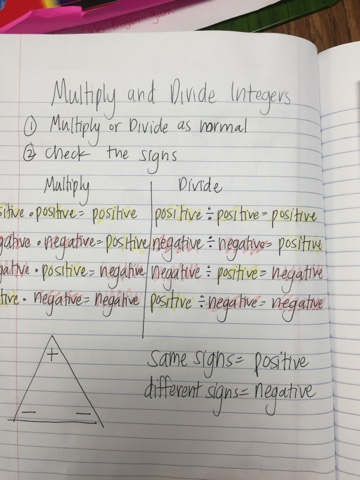 Multiply and Divide Integers
① Multiply or Divide as normal
② check the signs
Multiply Divide
sitive • positive = positive positive ÷ positive = positive
gative • negative = positive negative ÷ negative = positive
gative • positive = negative negative ÷ positive = negative
tive • negative = negative positive ÷ negative = negative
+
same signs = positive
different signs = negative
− −